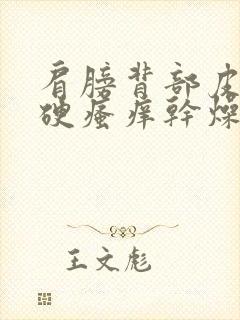 肩膀背部皮
硬瘙痒幹燥
王文彪